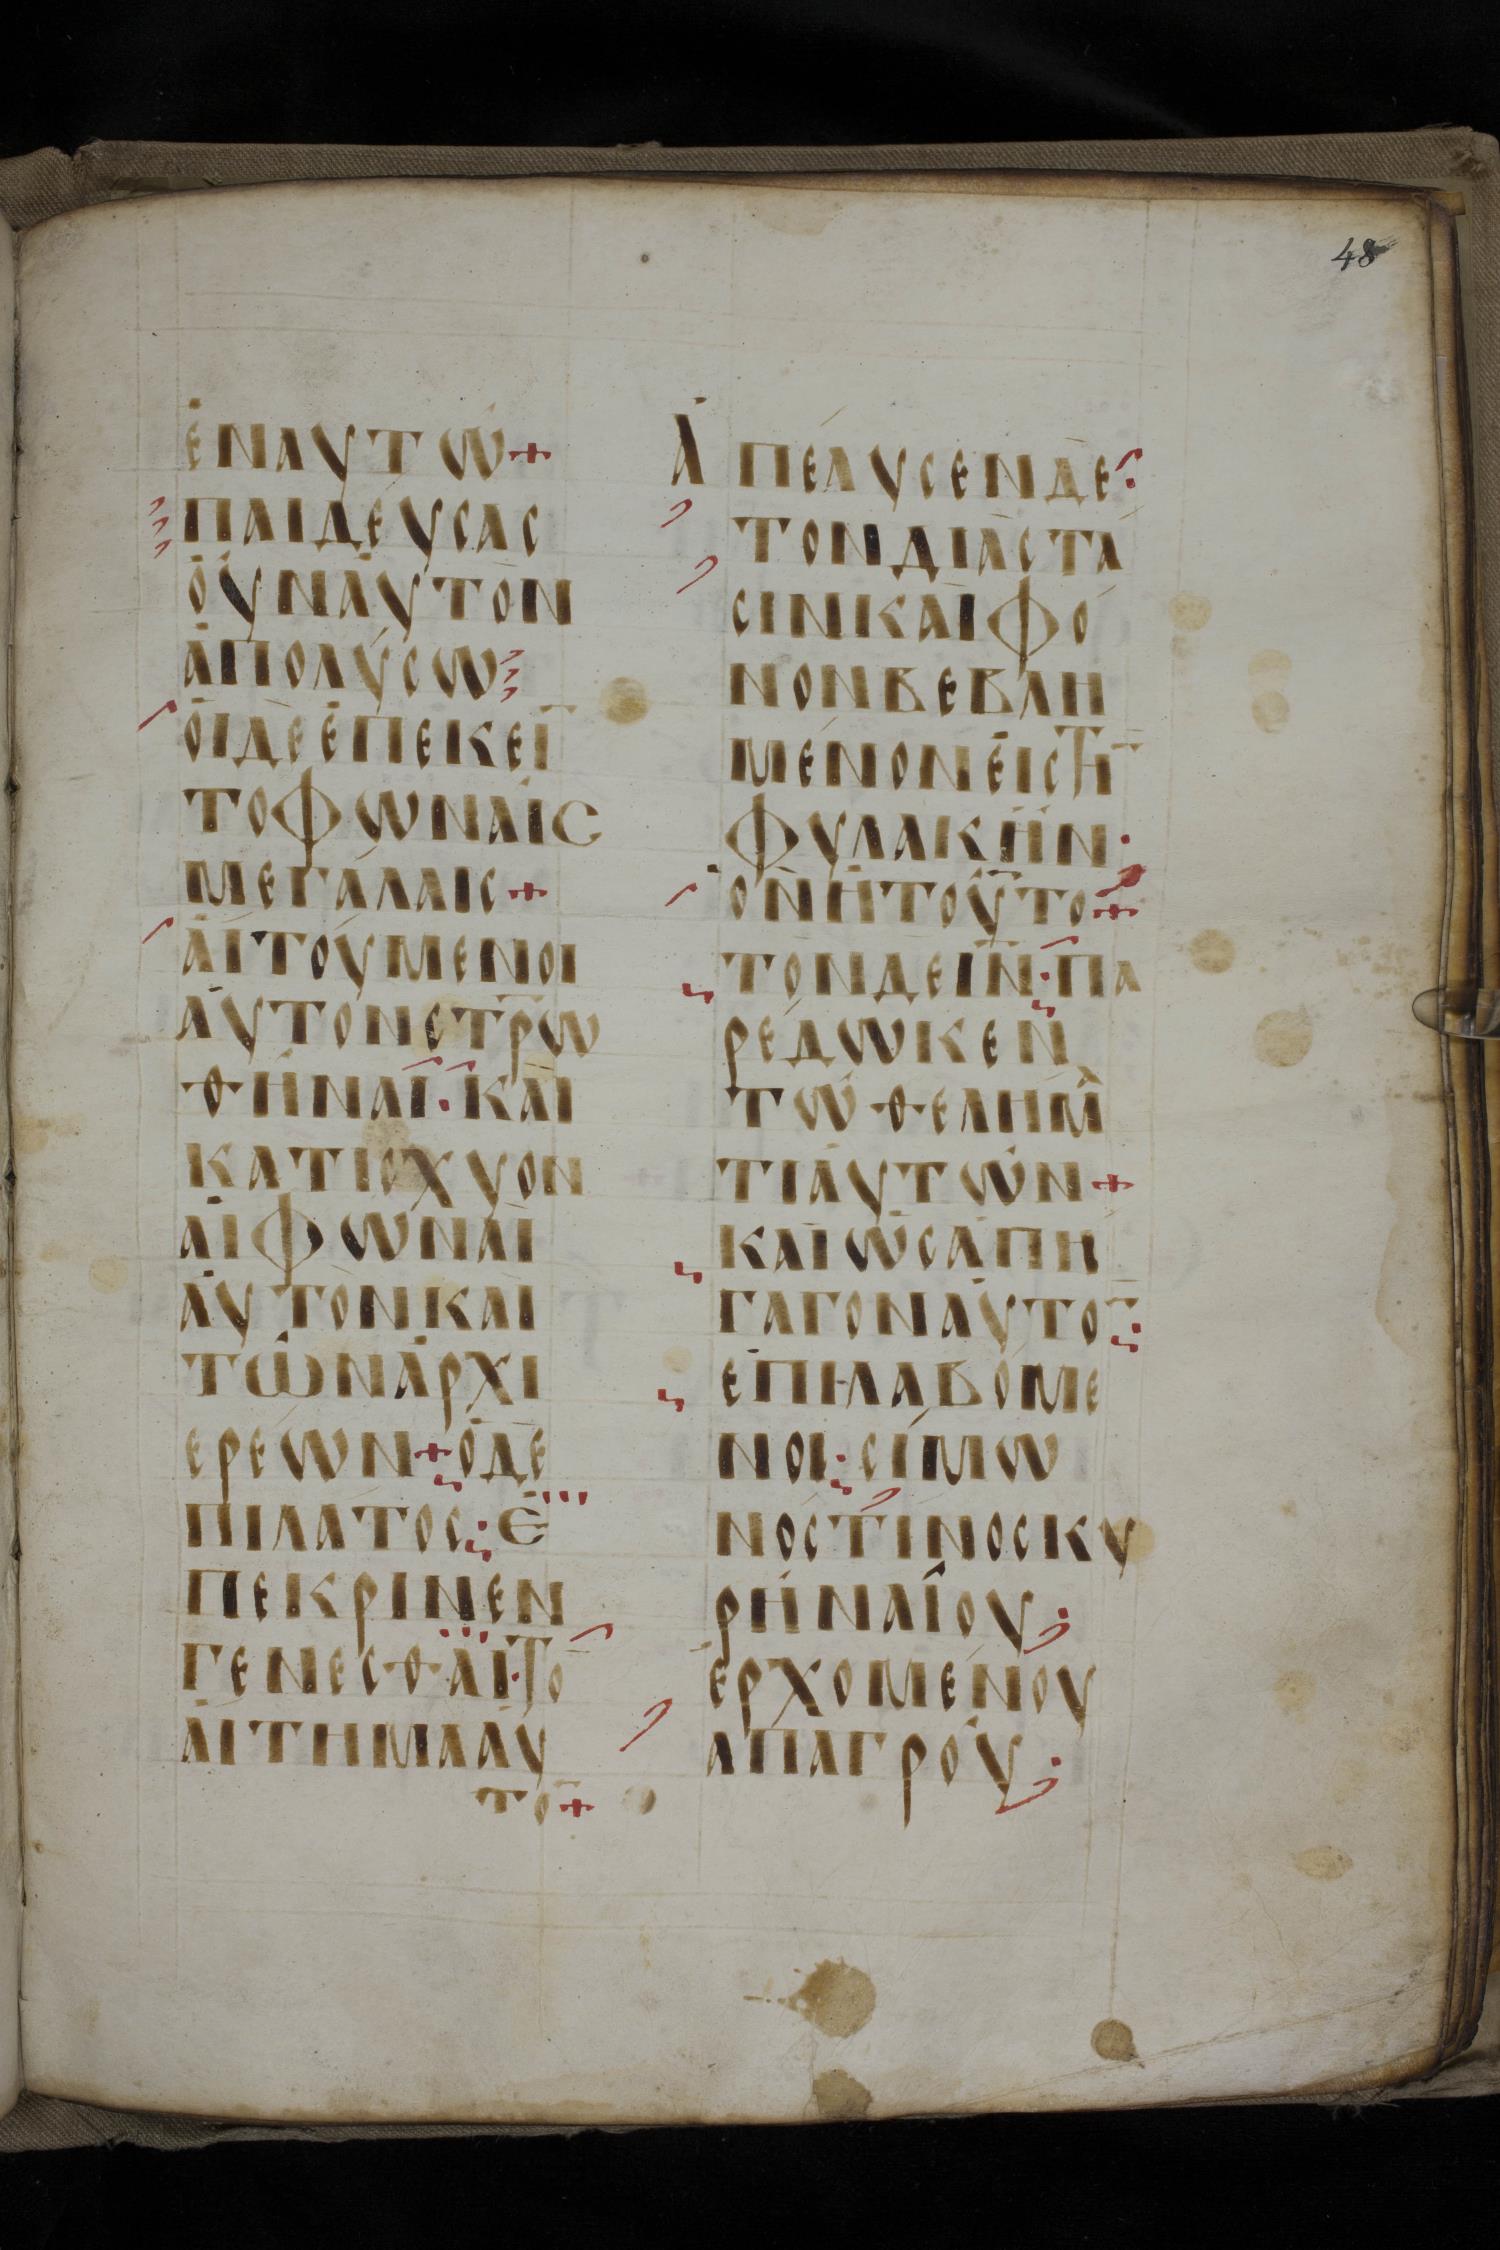 48
ἐναυτῶ+
παιδεύσας
ὀῦναὐτὸν
ἀπολύσω
ὁιδὲἐπέκειν̅
τοφωναῖς
μεγάλαις+
ἀιτούμενοι
ἀυτὸνστρ̅ω
θῆναι·και
κατισχυον
ἁιφωνὰι
ἀυτὸνκαι
τῶνἀρχι
ερέων+ὁδὲ
πιλατος:ἐ
πεκρινεν
γενεσθἀι·το̅
ἀιτημαἀυ
το̅+
Ἀπέλυσενδε:
τονδιὰστά
σινκαὶφό
νονβεβλη
μένονἐιστὴ̅
φυλακὴν·
ὃνἠτοῦ̅το+
τονδειν̅·πα
ρέδωκεν
τῶθελήμα
τιἀυτῶν+
καὶὡσἀπη
γαγοναὐτο̅:
ἐπιλαβόμε
νοι:σίμω
νόςτινοσκυ
ρηναίου;
ἐρχομένου
απαγροῦ;